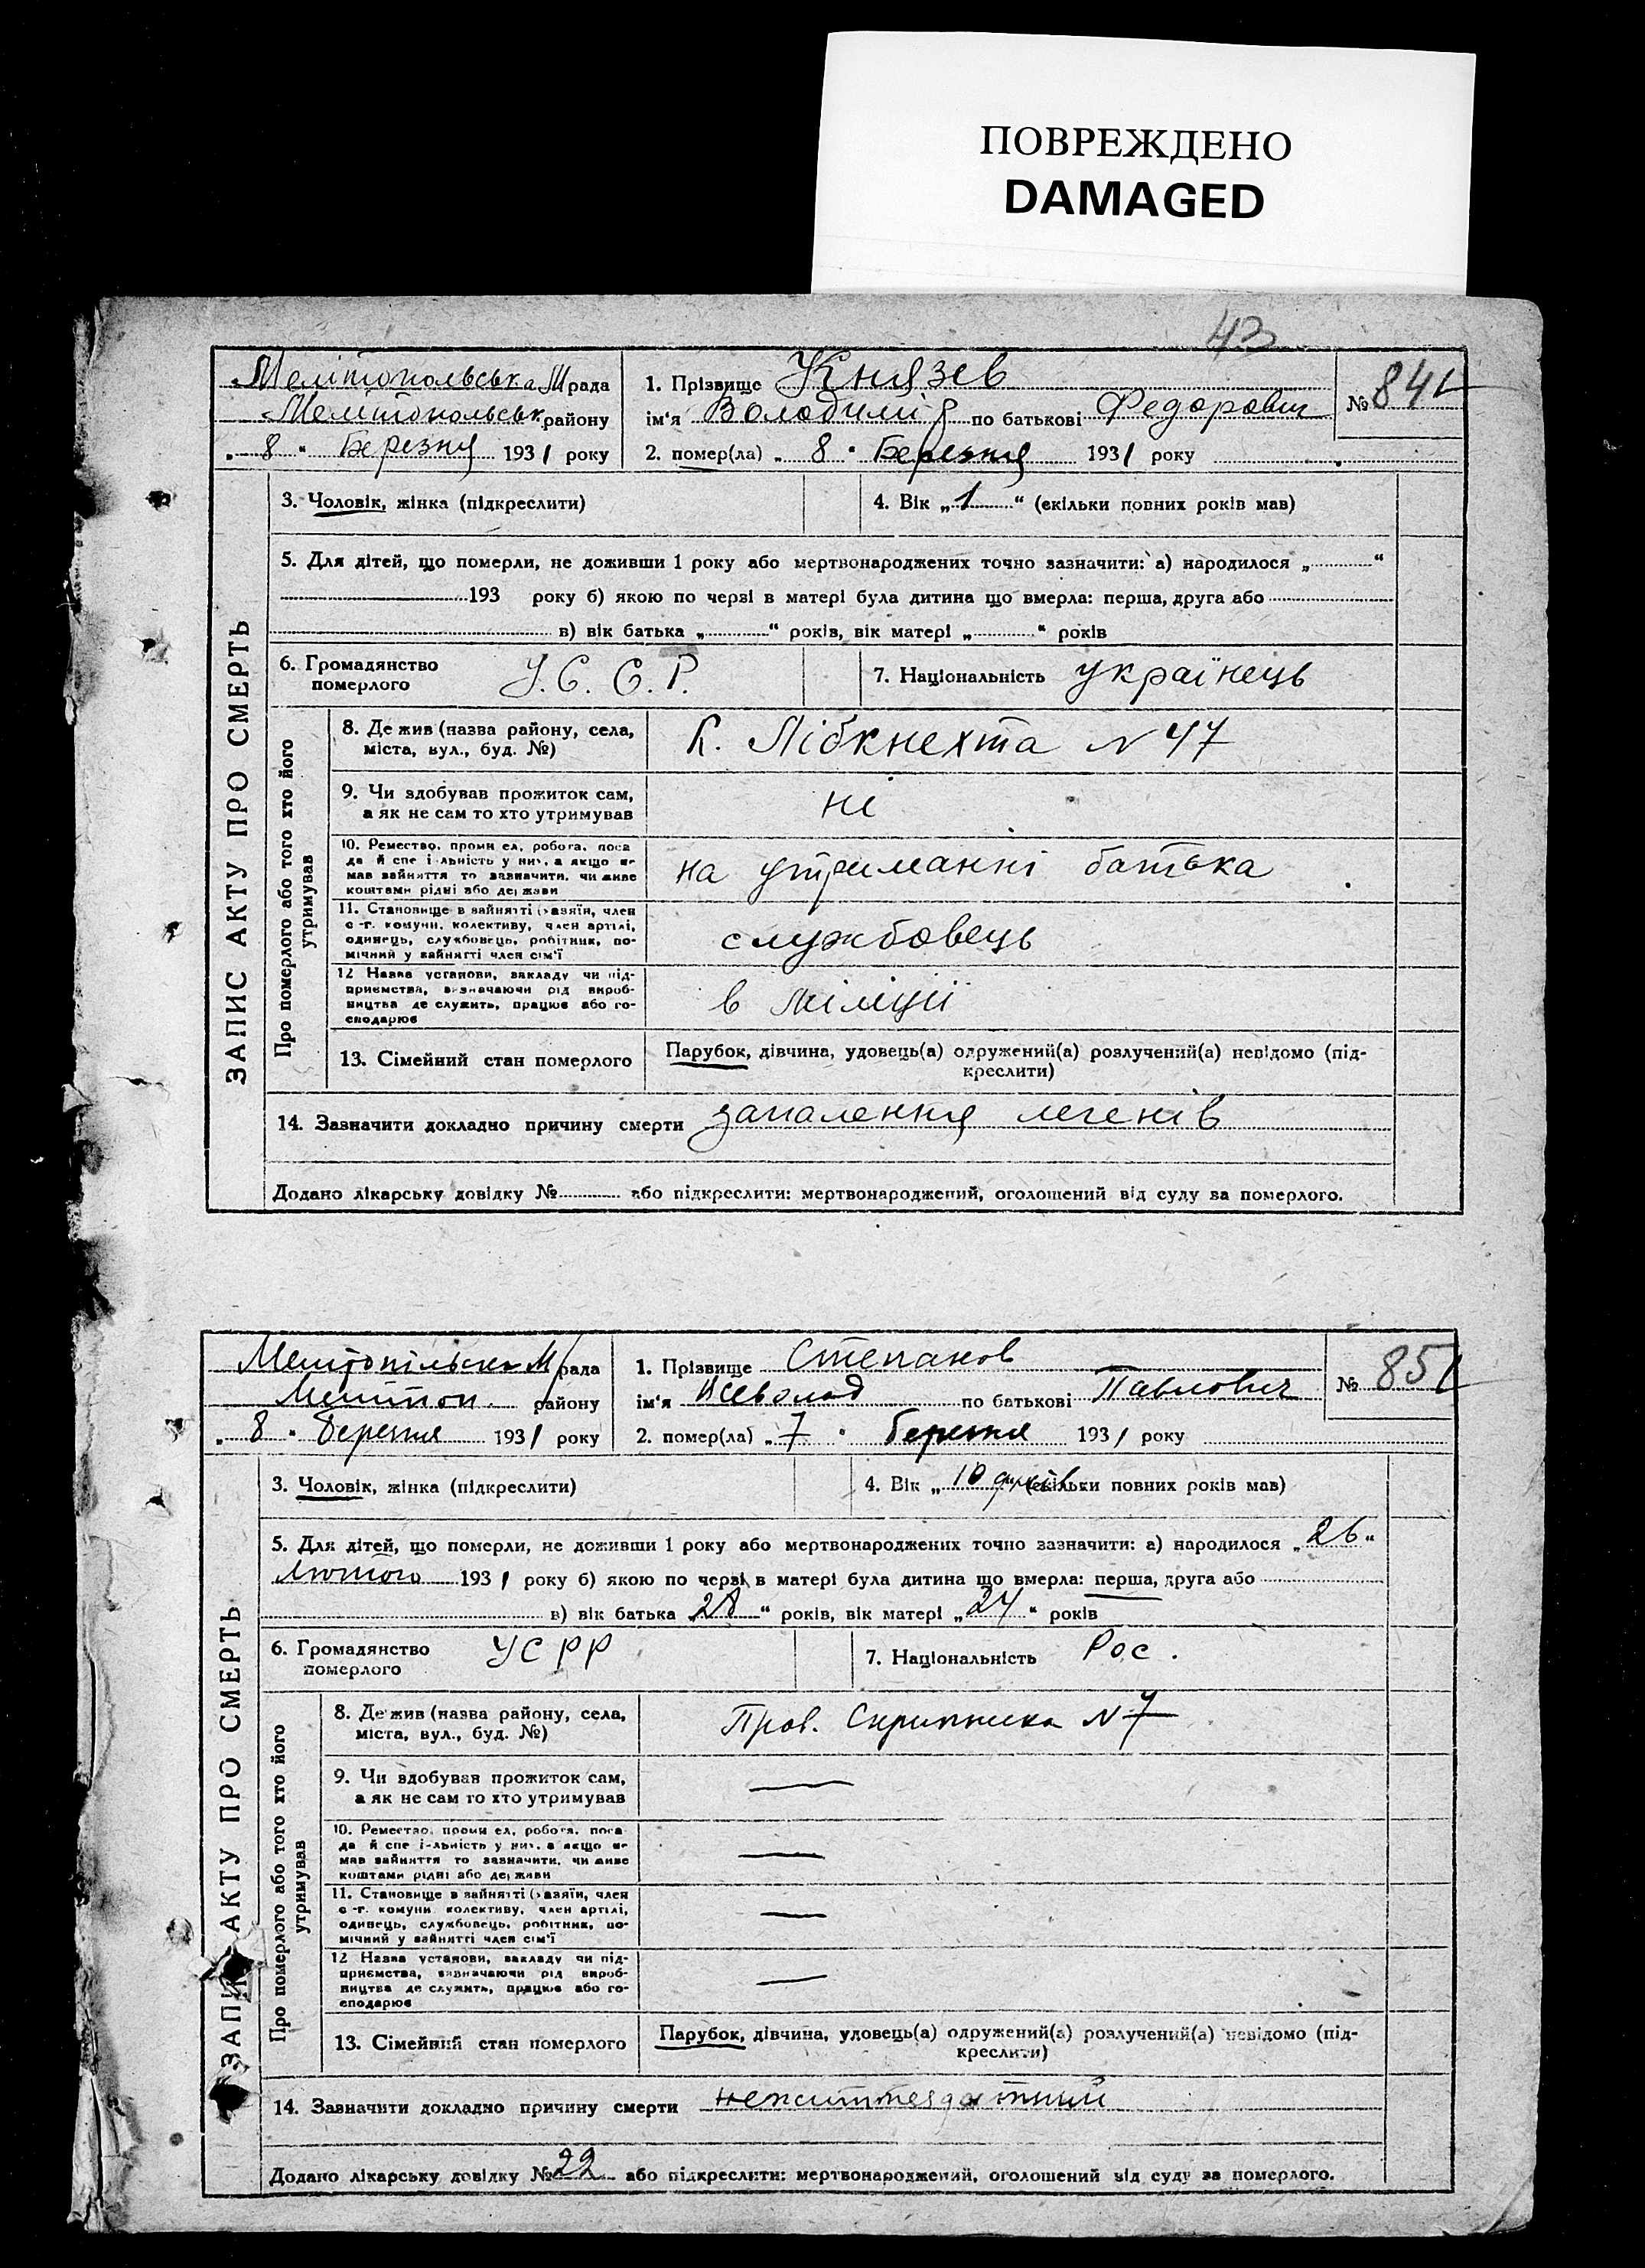 ПОВРЕЖДЕНО
DAMAGED
43
Мелітопольська М рада
Мелітопольськ району
„ 8 “ Березня 1931 року
1. Прізвище Князєв
ім'я Володимір по батькові Федорович
2. помер(ла) „ 8 “ Березня 1931 року
№ 84
ЗАПИС АКТУ ПРО СМЕРТЬ
3. Чоловік, жінка (підкреслити)
4. Вік „ 1 “ (скільки повних років мав)
5. Для дітей, що померли, не доживши 1 року або мертвонароджених точно зазначити: а) народилося „ “
193 року б) якою по черзі в матері була дитина що вмерла: перша, друга або
в) вік батька „ “ років, вік матері „ “ років
6. Громадянство
померлого
У.С.С.Р.
7. Національність українець
Про померлого або того хто його
утримував
8. Де жив (назва району, села,
міста, вул., буд. №)
К. Лібкнехта N 47
9. Чи здобував прожиток сам,
а як не сам то хто утримував
ні
10. Ремество, промисел, робота, поса
да й спеціяльність у них, а якщо не
мав зайняття то зазначити, чи живе
коштами рідні або держави
на утриманні батька
11. Становище в зайнятті (хазяїн, член
с.-г. комуни, колективу, член артілі,
одинець, службовець, робітник, по-
мічний у зайнятті член сім'ї
службовець
12 Назва установи, закладу чи під-
приємства, визначаючи рід вироб-
ництва де служить, працює або го-
сподарює
в міліції
13. Сімейний стан померлого
Парубок, дівчина, удовець(а) одружений(а) розлучений(а) невідомо (під-
креслити)
14. Зазначити докладно причину смерти запалення легенів
Додано лікарську довідку № або підкреслити: мертвонароджений, оголошений від суду за померлого.
Мелітопільська М/рада
Мелітоп. району
„ 8 “ березня 1931 року
1. Прізвище Степанов
ім'я Всеволод по батькові Павлович
2. помер(ла) „ 7 “ березня 1931 року
№ 85
ЗАПИС АКТУ ПРО СМЕРТЬ
3. Чоловік, жінка (підкреслити)
4. Вік „ 10 днів (скільки повних років мав)
5. Для дітей, що померли, не доживши 1 року або мертвонароджених точно зазначити: а) народилося „ 26 “
лютого 1931 року б) якою по черзі в матері була дитина що вмерла: перша, друга або
в) вік батька „ 28 “ років, вік матері „ 24 “ років
6. Громадянство
померлого
УСРР
7. Національність Рос.
Про померлого або того хто його
утримував
8. Де жив (назва району, села,
міста, вул., буд. №)
Пров. Скрипника N 7
9. Чи здобував прожиток сам,
а як не сам то хто утримував
—
10. Ремество, промисел, робота, поса
да й спеціяльність у них, а якщо не
мав зайняття то зазначити, чи живе
коштами рідні або держави
—
11. Становище в зайнятті (хазяїн, член
с.-г. комуни колективу, член артілі,
одинець, службовець, робітник, по-
мічний у зайнятті член сім'ї
—
12 Назва установи, закладу чи під-
приємства, визначаючи рід вироб-
ництва де служить, працює або го-
сподарює
—
13. Сімейний стан померлого
Парубок, дівчина, удовець(а) одружений(а) розлучений(а) невідомо (під-
креслити)
14. Зазначити докладно причину смерти нежиттєздатний
Додано лікарську довідку № 22 або підкреслити: мертвонароджений, оголошений від суду за померлого.